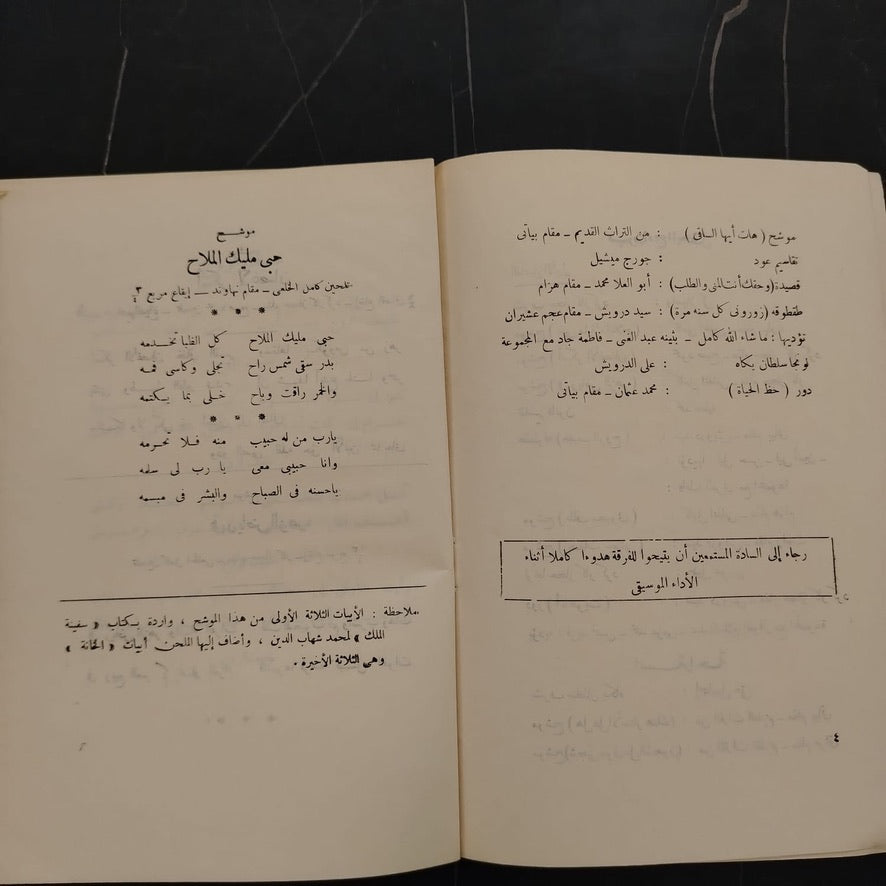 موشح ( هات أيها الساقى ) : من التراث القديم ــ مقام بياتى
تقاسيم عود : جورج ميشيل
قصيدة (وحقك أنت المنى والطلب) : أبو العلا محمد ــ مقام هزام
طقطوقه (زورونى كل سنه مرة) : سيد درويش ــ مقام عجم عشيران
تؤديها : ما شاء الله كامل ــ بثينه عبد الغنى ــ فاطمة جاد مع المجموعة
لونجا سلطان يكاه : على الدرويش
دور ( حظ الحياة ) : محمد عثمان ــ مقام بياتى
رجاء إلى السادة المستمعين أن يتيحوا للفرقة هدوءا كاملا أثناء
الأداء الموسيقى
٤
موشح
حبى مليك الملاح
تلحين كامل الخلعى ــ مقام نهاوند ــ إيقاع مربع
* * *
حبى مليك الملاح كل الظبا تخدمه
بدر سقى شمس راح تجلى وكاسى فمه
والخمر راقت وباح خلى بما يكتمه
* * *
يارب من له حبيب منه فلا تحرمه
وانا حبيبى معى يا رب لى سلمه
ياحسنه فى الصباح والبشر فى مبسمه
ملاحظة : الأبيات الثلاثة الأولى من هذا الموشح ، واردة بكتاب « سفينة
الملك » لمحمد شهاب الدين ، وأضاف إليها الملحن أبيات « الخانة »
وهى الثلاثة الأخيرة .